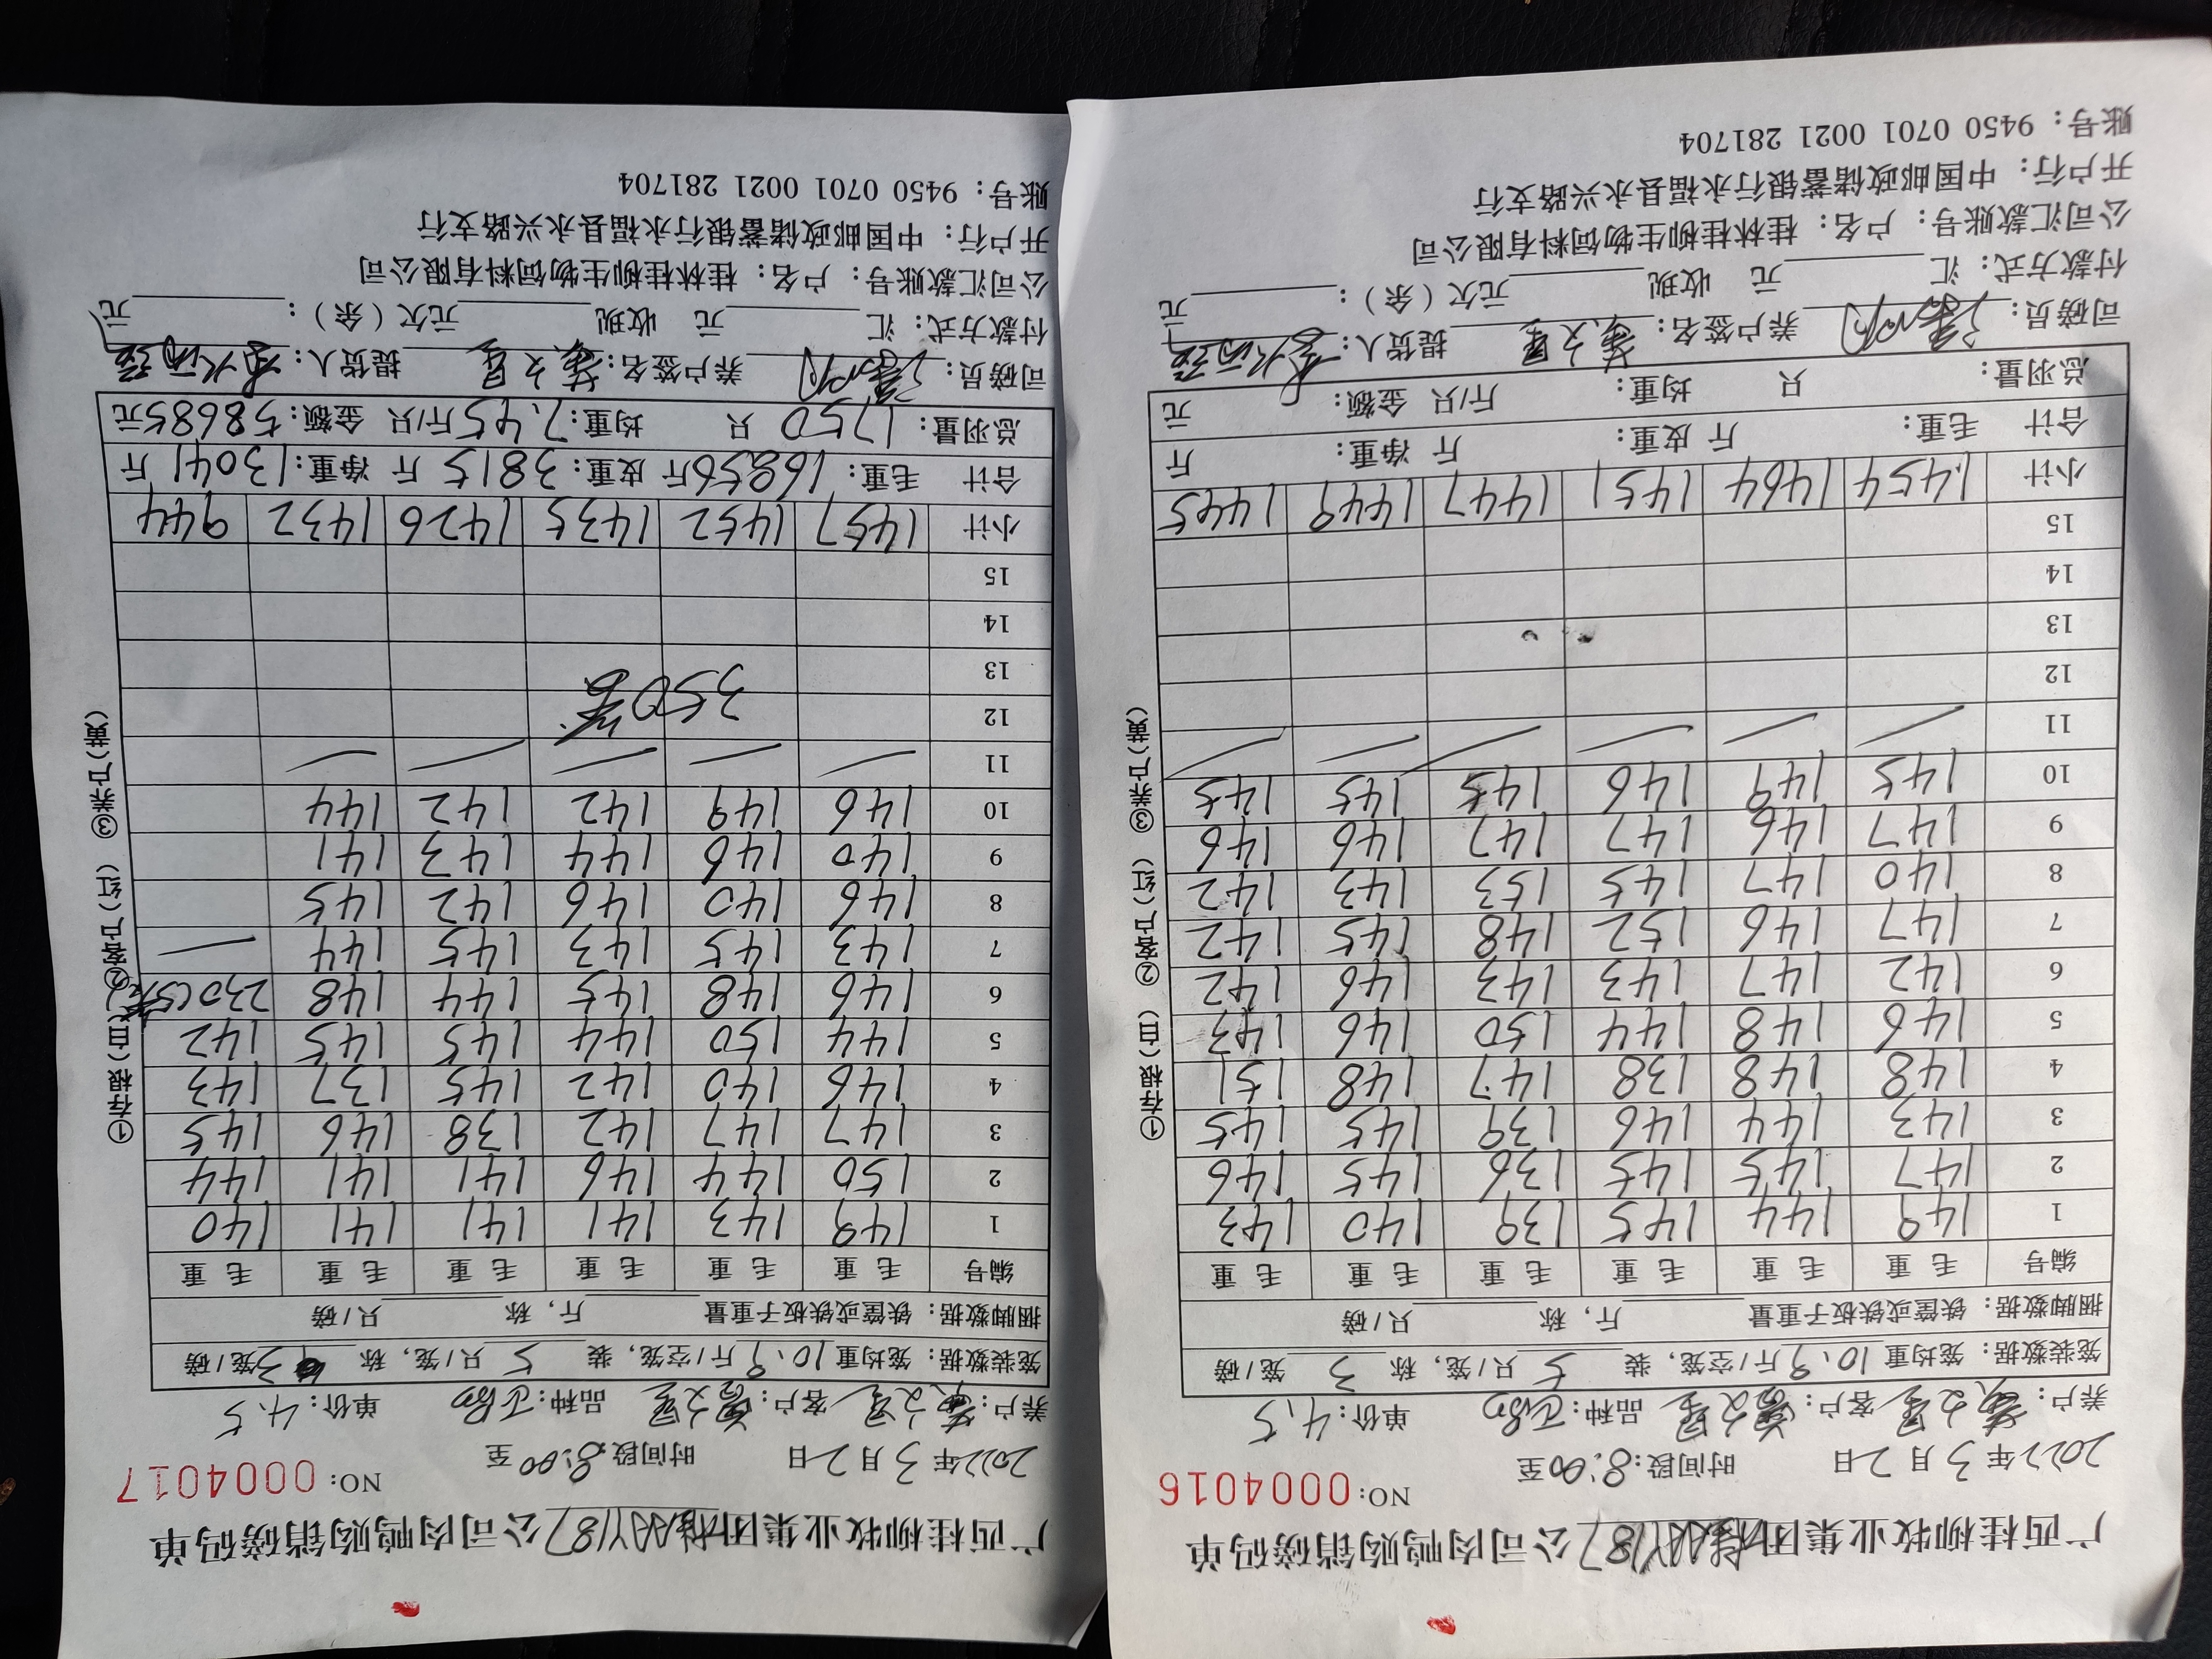 广西桂柳牧业集团187公司肉鸭购销磅码单
NO: 0004016
2022年3月2日 时间段:8:00至
养户: 文星 客户: 文星 品种: 单价:4.5
笼装数据: 笼均重10.9斤/空笼, 装5只/笼, 称3笼/磅
捆脚数据: 铁筐或铁板子重量 斤, 称 只/磅
编号 毛重 毛重 毛重 毛重 毛重 毛重
1 149 144 145 139 140 143
2 147 145 145 136 145 146
3 143 144 146 139 145 145
4 148 148 138 147 148 151
5 146 148 144 150 146 143
6 142 147 143 143 146 142
7 147 146 152 148 145 142
8 140 147 145 153 143 142
9 147 146 147 147 146 146
10 145 149 146 145 145 145
11
12
13
14
15
小计 1454 1464 1451 1447 1449 1445
合计 毛重: 斤 皮重: 斤 净重: 斤
总羽量: 只 均重: 斤/只 金额: 元
司磅员: 养户签名: 文星 提货人:
付款方式: 汇 元 收现 元欠(余): 元
公司汇款账号: 户名: 桂林桂柳生物饲料有限公司
开户行: 中国邮政储蓄银行永福县永兴路支行
账号: 9450 0701 0021 281704
①存根(白) ②客户(红) ③养户(黄)
广西桂柳牧业集团187公司肉鸭购销磅码单
NO: 0004017
2022年3月2日 时间段:8:00至
养户: 文星 客户: 文星 品种: 单价:4.5
笼装数据: 笼均重10.9斤/空笼, 装5只/笼, 称3笼/磅
捆脚数据: 铁筐或铁板子重量 斤, 称 只/磅
编号 毛重 毛重 毛重 毛重 毛重 毛重
1 149 143 141 141 141 140
2 150 144 146 141 141 144
3 147 147 142 138 146 145
4 146 140 142 145 137 143
5 144 150 144 145 145 142
6 146 148 145 144 148 230(5笼)
7 143 145 143 145 144
8 146 140 146 142 145
9 140 146 144 143 141
10 146 149 142 142 144
11
12 350笼
13
14
15
小计 1457 1452 1435 1426 1432 944
合计 毛重: 16856斤 皮重: 3815斤 净重: 13041斤
总羽量: 1750只 均重: 7.45斤/只 金额: 58685元
司磅员: 养户签名: 文星 提货人:
付款方式: 汇 元 收现 元欠(余): 元
公司汇款账号: 户名: 桂林桂柳生物饲料有限公司
开户行: 中国邮政储蓄银行永福县永兴路支行
账号: 9450 0701 0021 281704
①存根(白) ②客户(红) ③养户(黄)